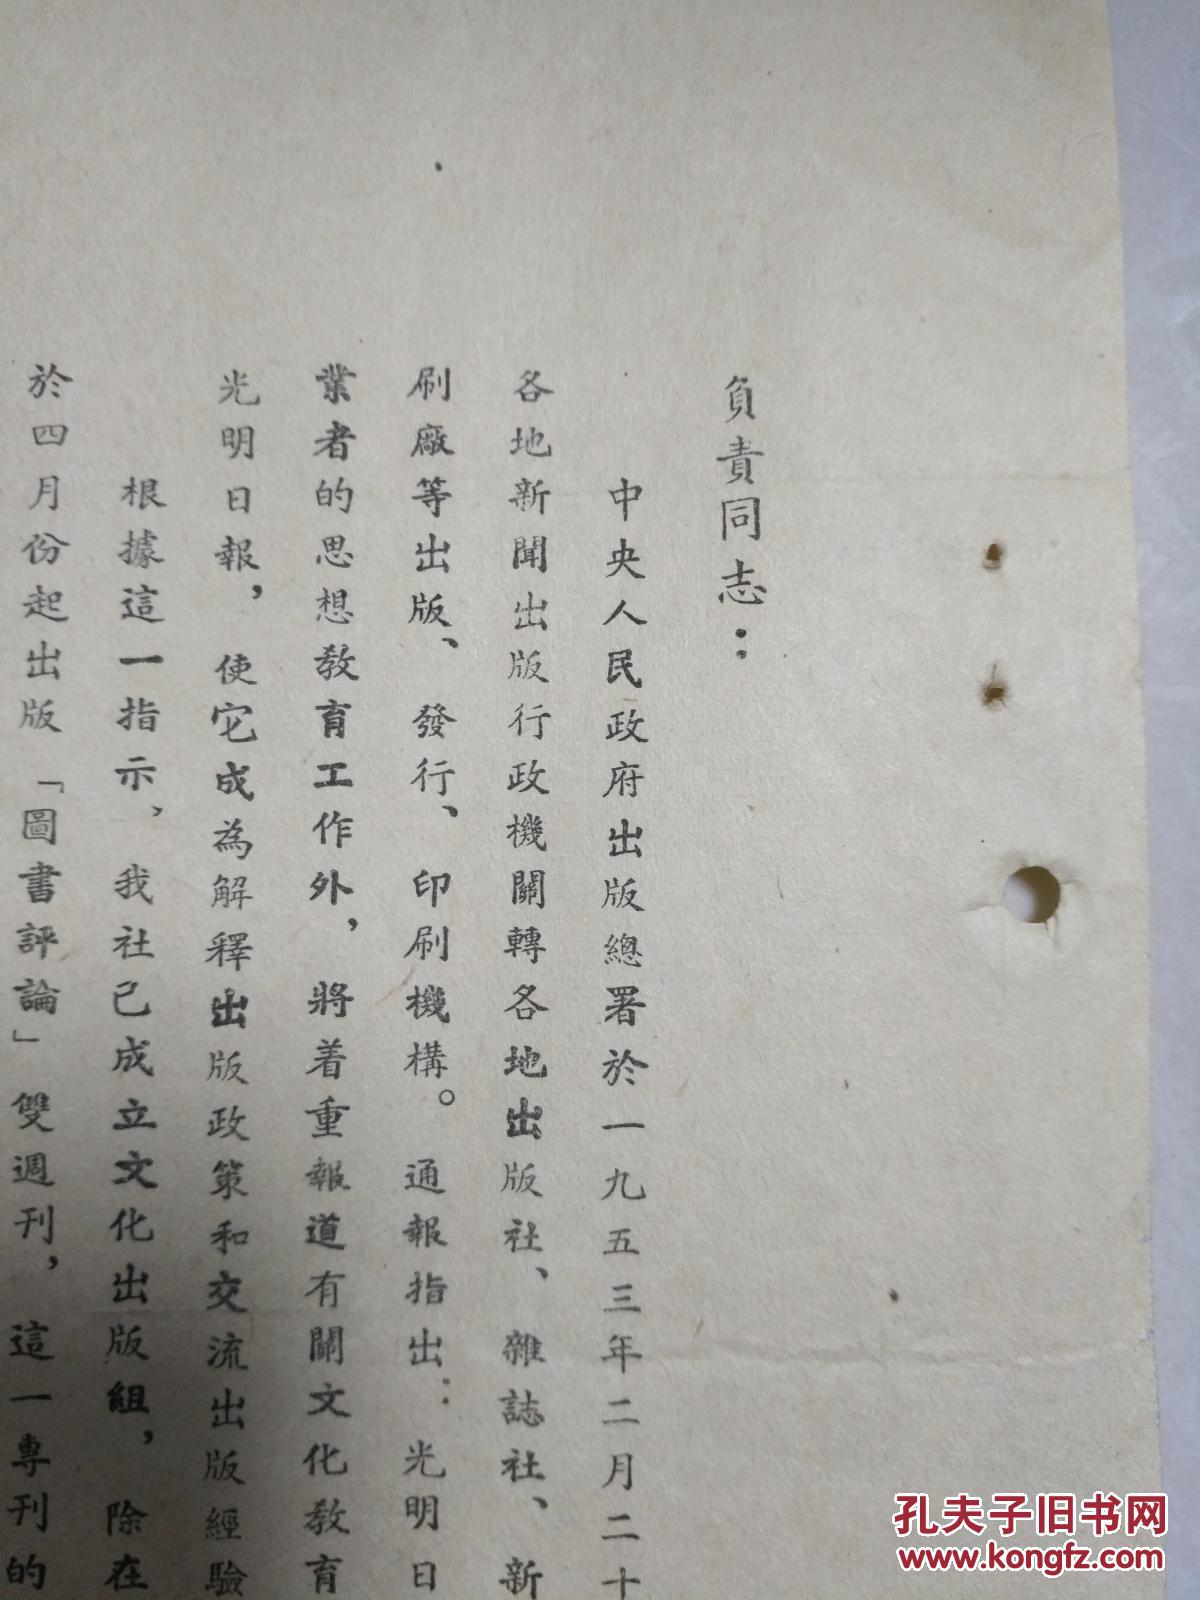 負責同志：
中央人民政府出版總署於一九五三年二月二十
各地新聞出版行政機關轉各地出版社、雜誌社、新
刷廠等出版、發行、印刷機構。通報指出：光明日
業者的思想教育工作外，將着重報道有關文化教育
光明日報，使它成為解釋出版政策和交流出版經驗
根據這一指示、我社已成立文化出版組，除在
於四月份起出版「圖書評論」雙週刊，這一專刊的
孔夫子旧书网
www.kongfz.com